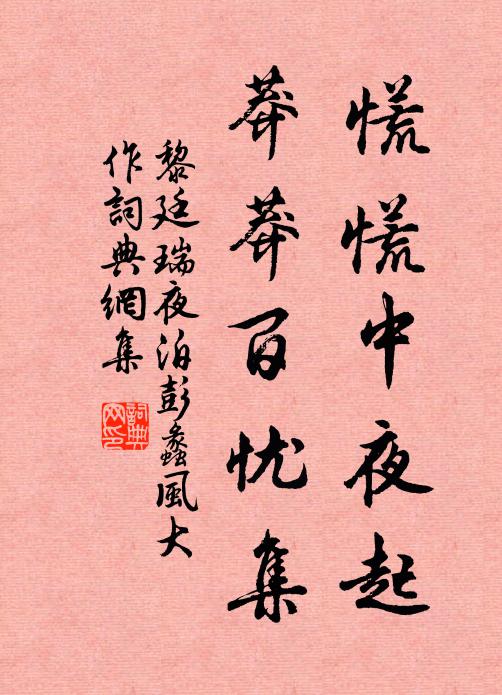 慌慌中夜起
莽莽百忧集
黎廷瑞夜泊彭蠡風大
作詞典網集
詞典网印